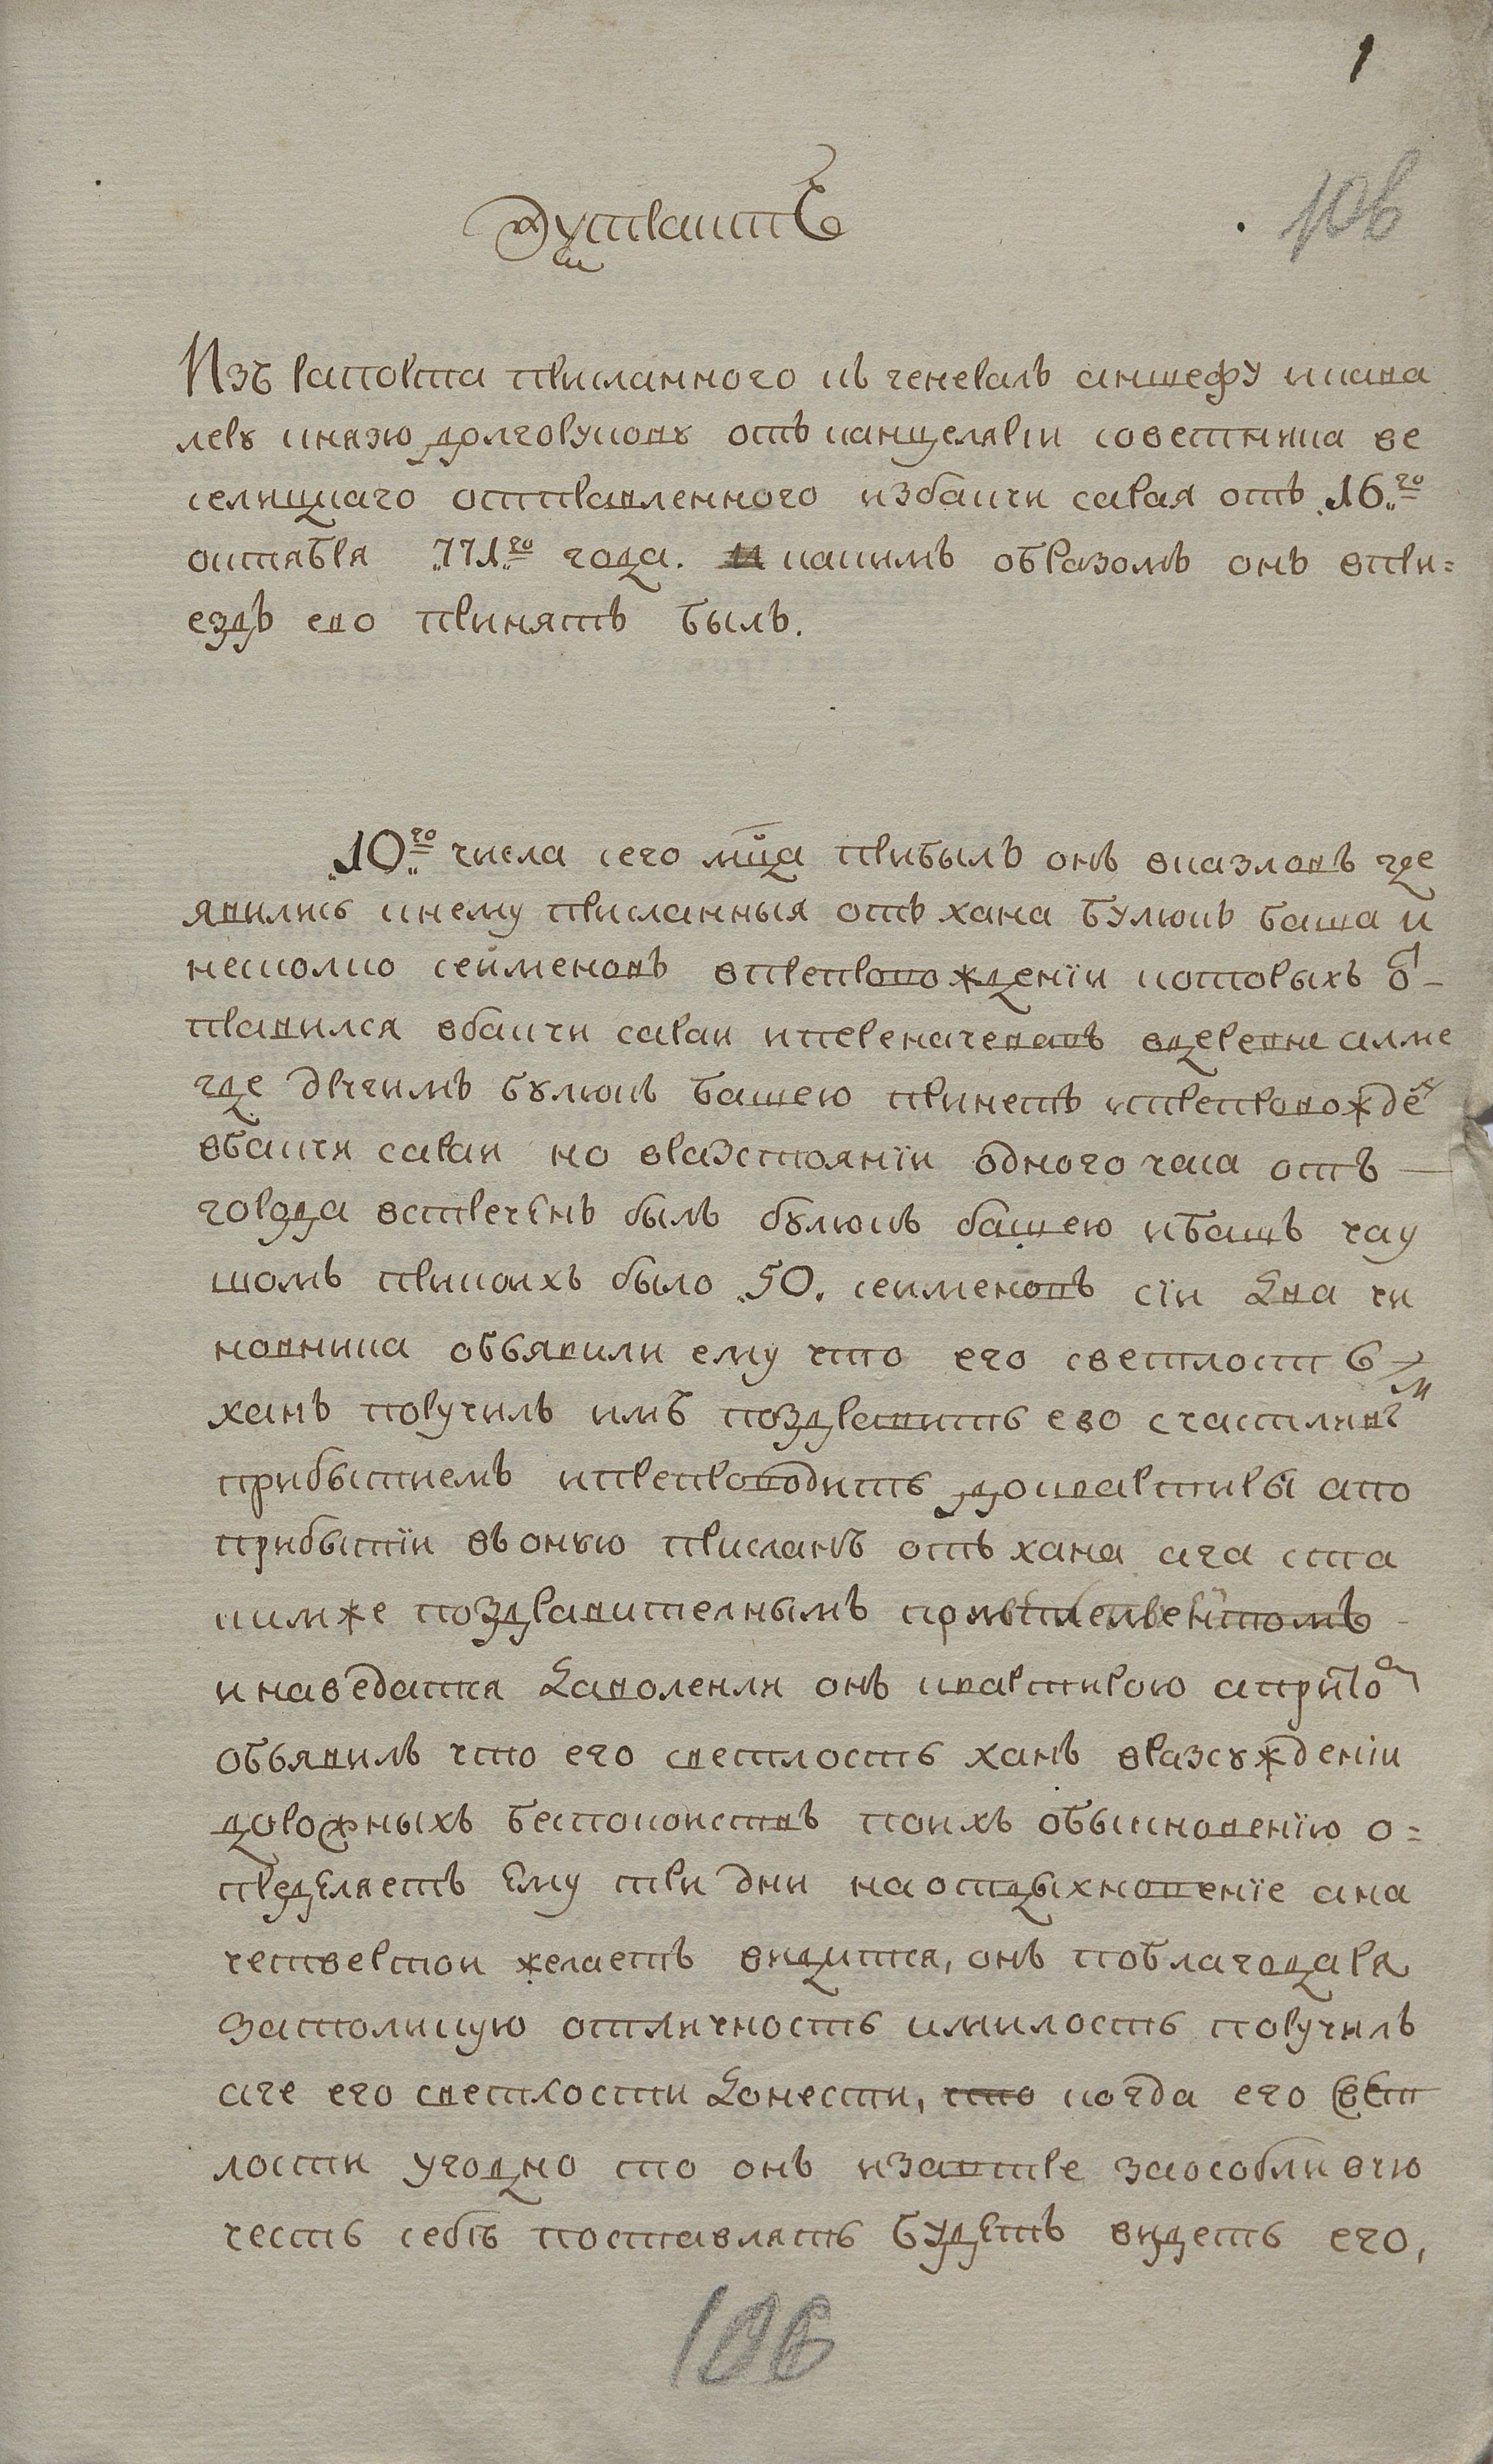 1
106
Экстрактъ
Изъ рапорта присланного къ генералъ аншефу и кава
леру князю долгорукову отъ канцеляріи советника ве
селицкаго отправленного избакчи сарая отъ 16.го
октября 771.го года. какимъ образомъ онъ впри=
ездъ ево принятъ былъ.
10.го числа сего мца прибылъ онъ вказловъ где
явились кнему присланныя отъ хана булюкъ баша и
несколко сейменовъ впрепровожденїи которыхъ о
правился вбакчи сараи ипереначевавъ вдеревне алме
где другимъ булюкъ башею принетъ ипрепровожде
вбакчи сараи но вразстоянїи одного часа отъ
города встреченъ былъ булюкъ башею ибашъ чау
шомъ прикоихъ было 50. сеименовъ сїи два чи
новника объявили ему что его светлость
ханъ поручилъ имъ поздравить ево счастливы
прибытиемъ ипрепроводить доквартиры апо
прибытїи въ оную присланъ отъ хана ага ста
кимже поздравителнымъ
инаведатся доволенли онъ квартирою апритом
объявилъ что его светлость ханъ вразсужденіи
дорожныхъ беспокоиствъ поихъ обыкновенїю о=
пределяетъ ему три дни наотдыхновенїе ана
четвертои желаетъ видится, онъ поблагодаря
затоликую отличность имилость поручилъ
аге его светлости донести, что когда его свет
лости угодно то онъ изавтре заособливую
честь себѣ поставлять будетъ видеть его,
106